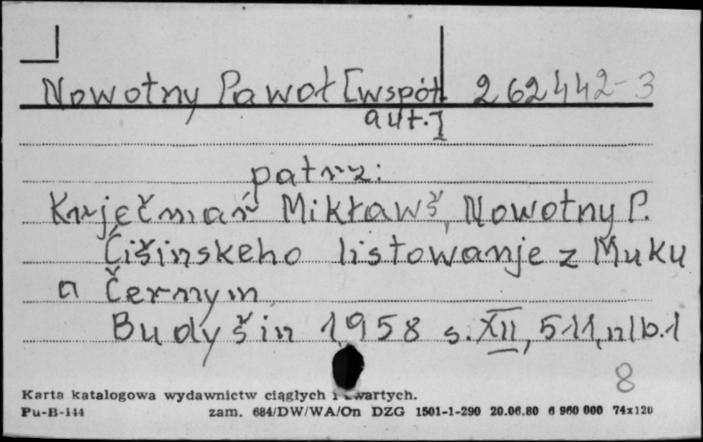 Nowotny Pawoł [współ 262442-3
aut.]
patrz:
Krječmaŕ Mikławš, Nowotny P.
Ćišinskeho listowanje z Muku
a Černym
Budyšin 1958 s. XII, 511, nlb. 1
8
Karta katalogowa wydawnictw ciągłych i zwartych.
Pu-B-144 zam. 684/DW/WA/On DZG 1501-1-290 20.06.80 6 960 000 74x120